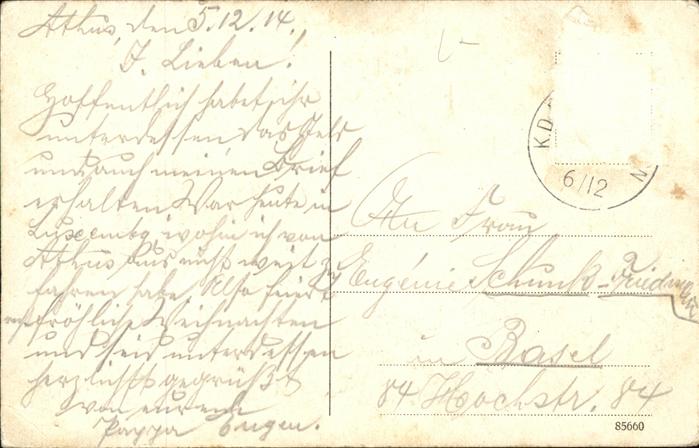 Athus, den 5.12.14.
I. Lieben!
Hoffentlich habet ihr
unterdessen das Geld
und auch meinen Brief
erhalten War heute in
Luxembg wohin ich von
Athus aus nicht weit zu
fahren habe Also feiert
fröhlich Weihnachten
und seid unterdessen
herzlichst gegrüßt
von eurem
Pappa Eugen.
K.D.
6/12
N
An Frau
Eugénie Schunk-
in Basel
84 Hochstr. 84
85660